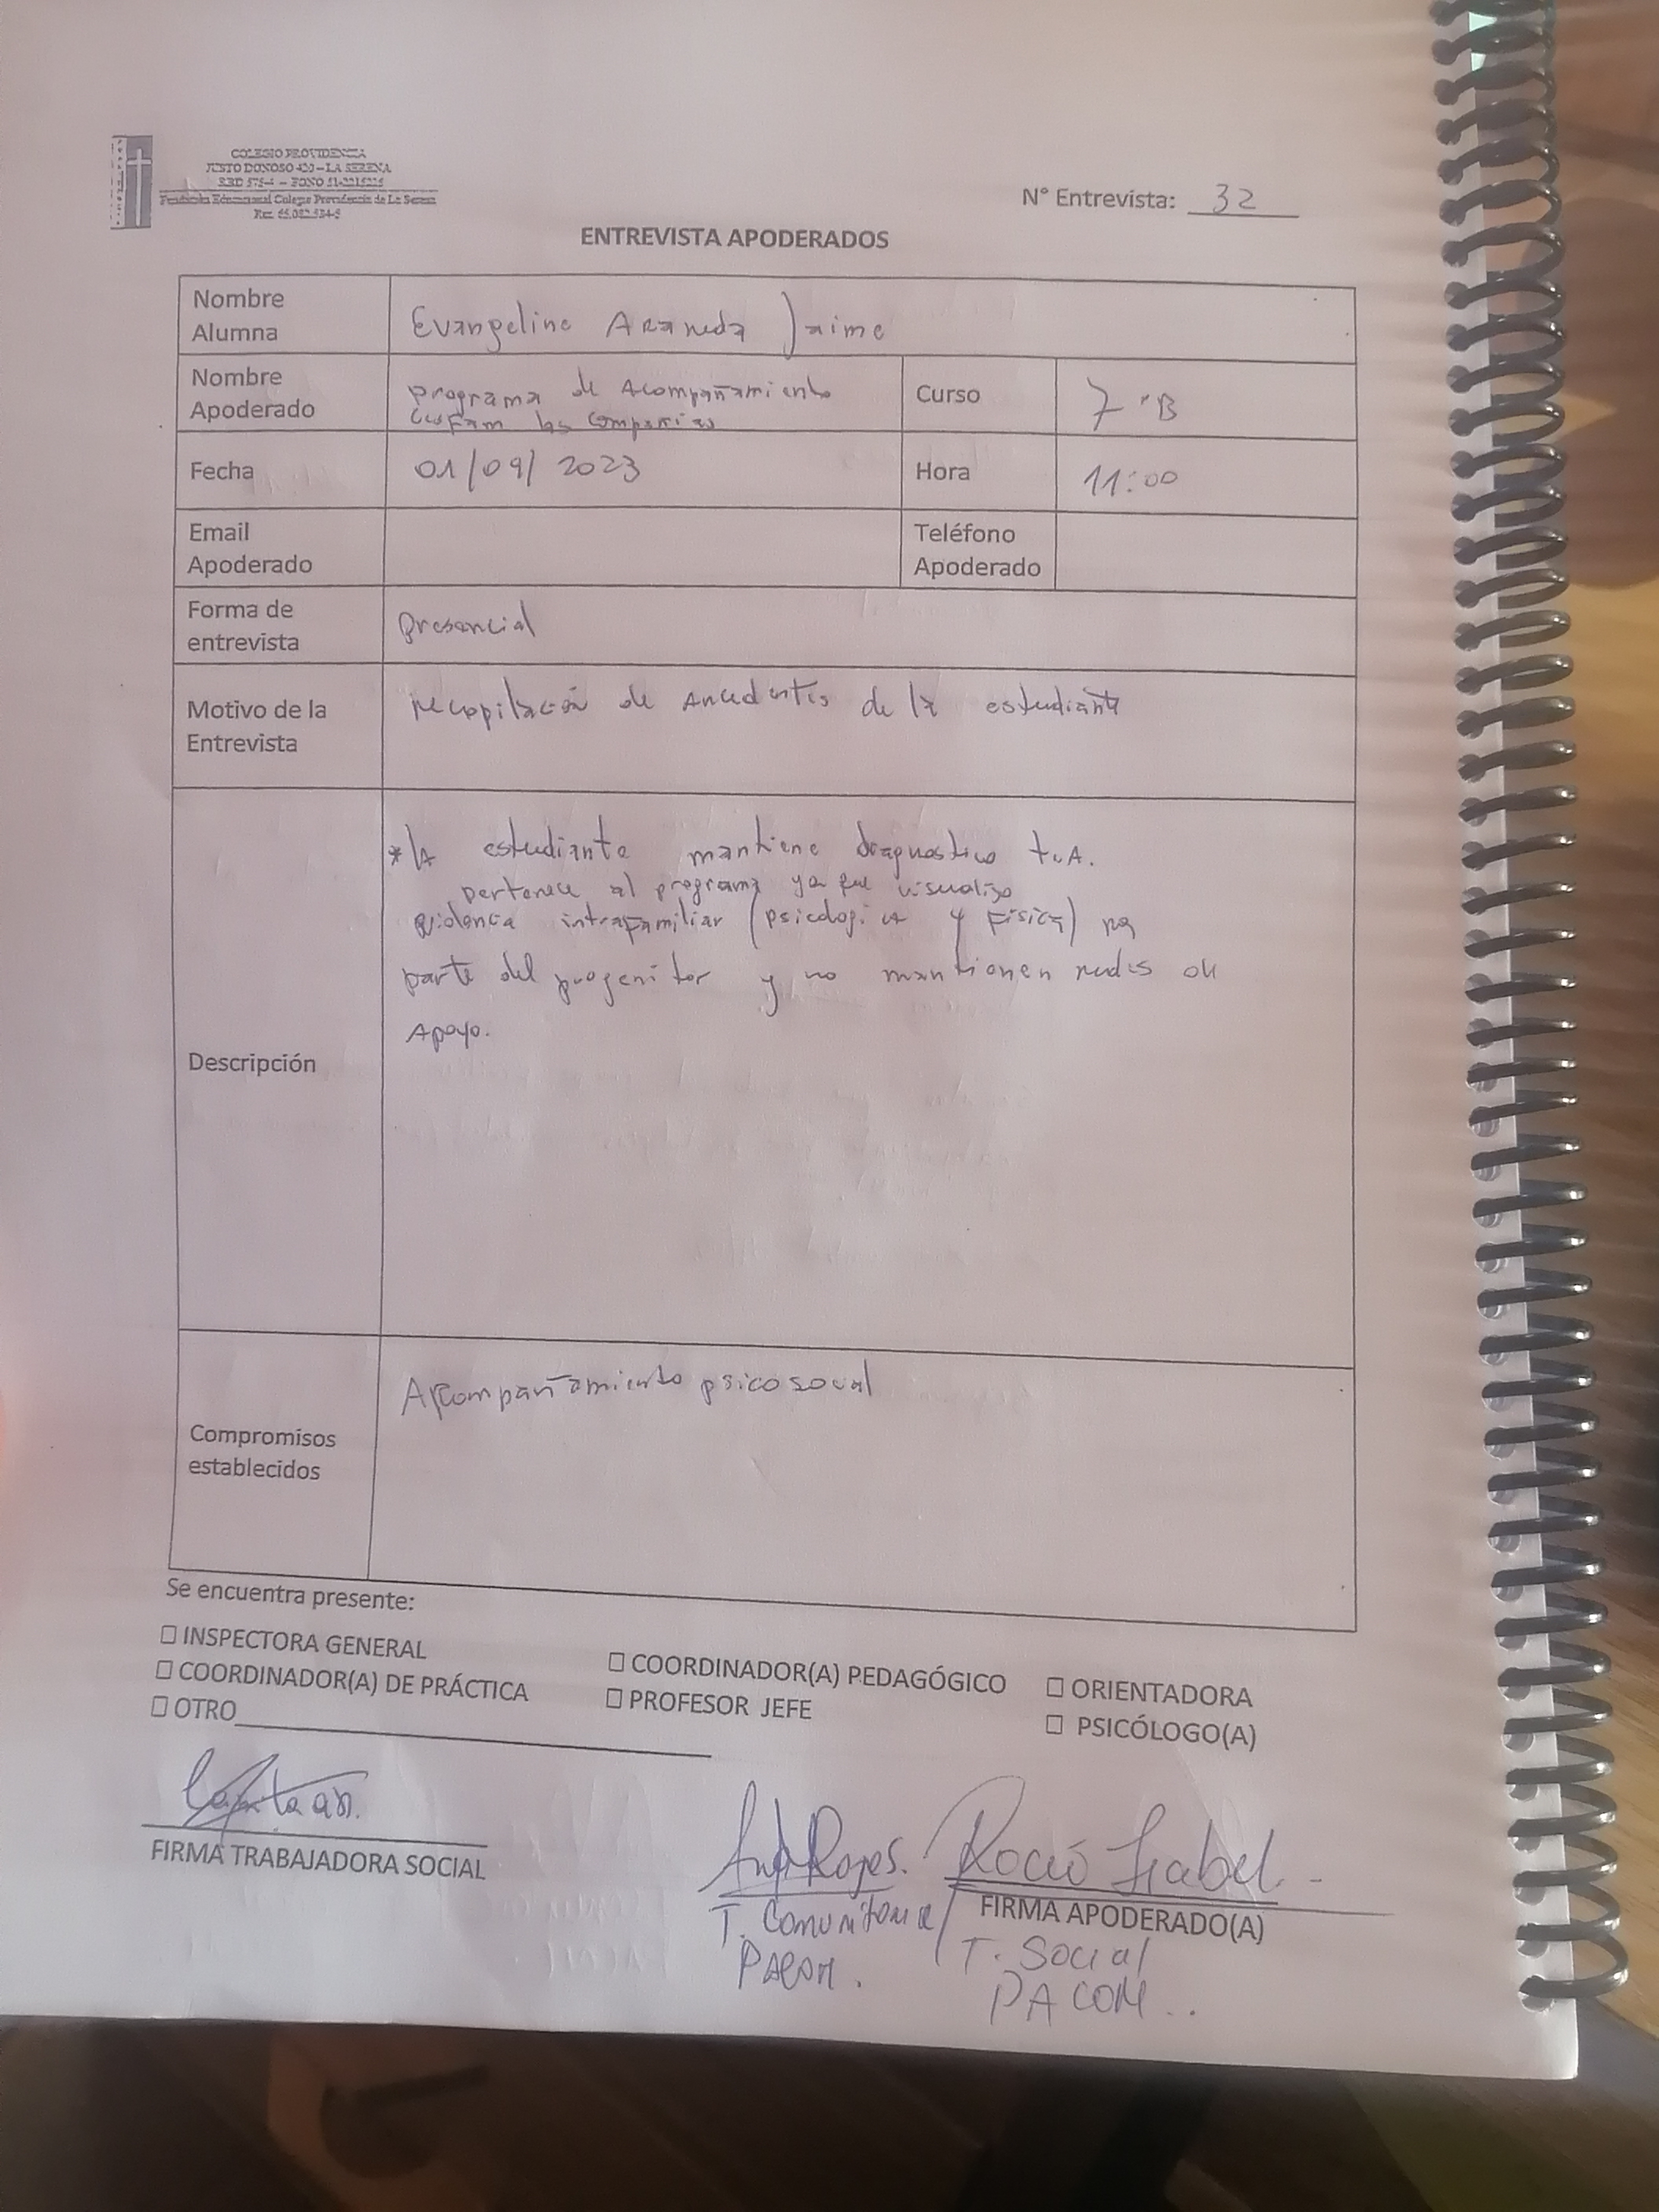 COLEGIO PROVIDENCIA
JUSTO DONOSO 420 – LA SERENA
RBD 575-4 – FONO
Fundación Educacional Colegio Providencia de La Serena
N° Entrevista: 32
ENTREVISTA APODERADOS
Nombre Alumna
Evangeline Araneda Jaime
Nombre Apoderado
programa de Acompañamiento
Cesfam las Compañías
Curso
7°B
Fecha
01/09/2023
Hora
11:00
Email Apoderado
Teléfono Apoderado
Forma de entrevista
presencial
Motivo de la Entrevista
recopilación de Antecedentes de la estudiante
Descripción
*la estudiante mantiene diagnostico
pertenece al programa ya que visualizo
violencia intrafamiliar (psicologica y física) por
parte del progenitor y no mantienen redes de
Apoyo.
Compromisos establecidos
Acompañamiento psicosocial
Se encuentra presente:
☐ INSPECTORA GENERAL
☐ COORDINADOR(A) PEDAGÓGICO
☐ ORIENTADORA
☐ COORDINADOR(A) DE PRÁCTICA
☐ PROFESOR JEFE
☐ PSICÓLOGO(A)
☐ OTRO
Rojas. Rocío Isabel
FIRMA TRABAJADORA SOCIAL
FIRMA APODERADO(A)
T. Comunitaria / T. Social
PACOM. PACOM..